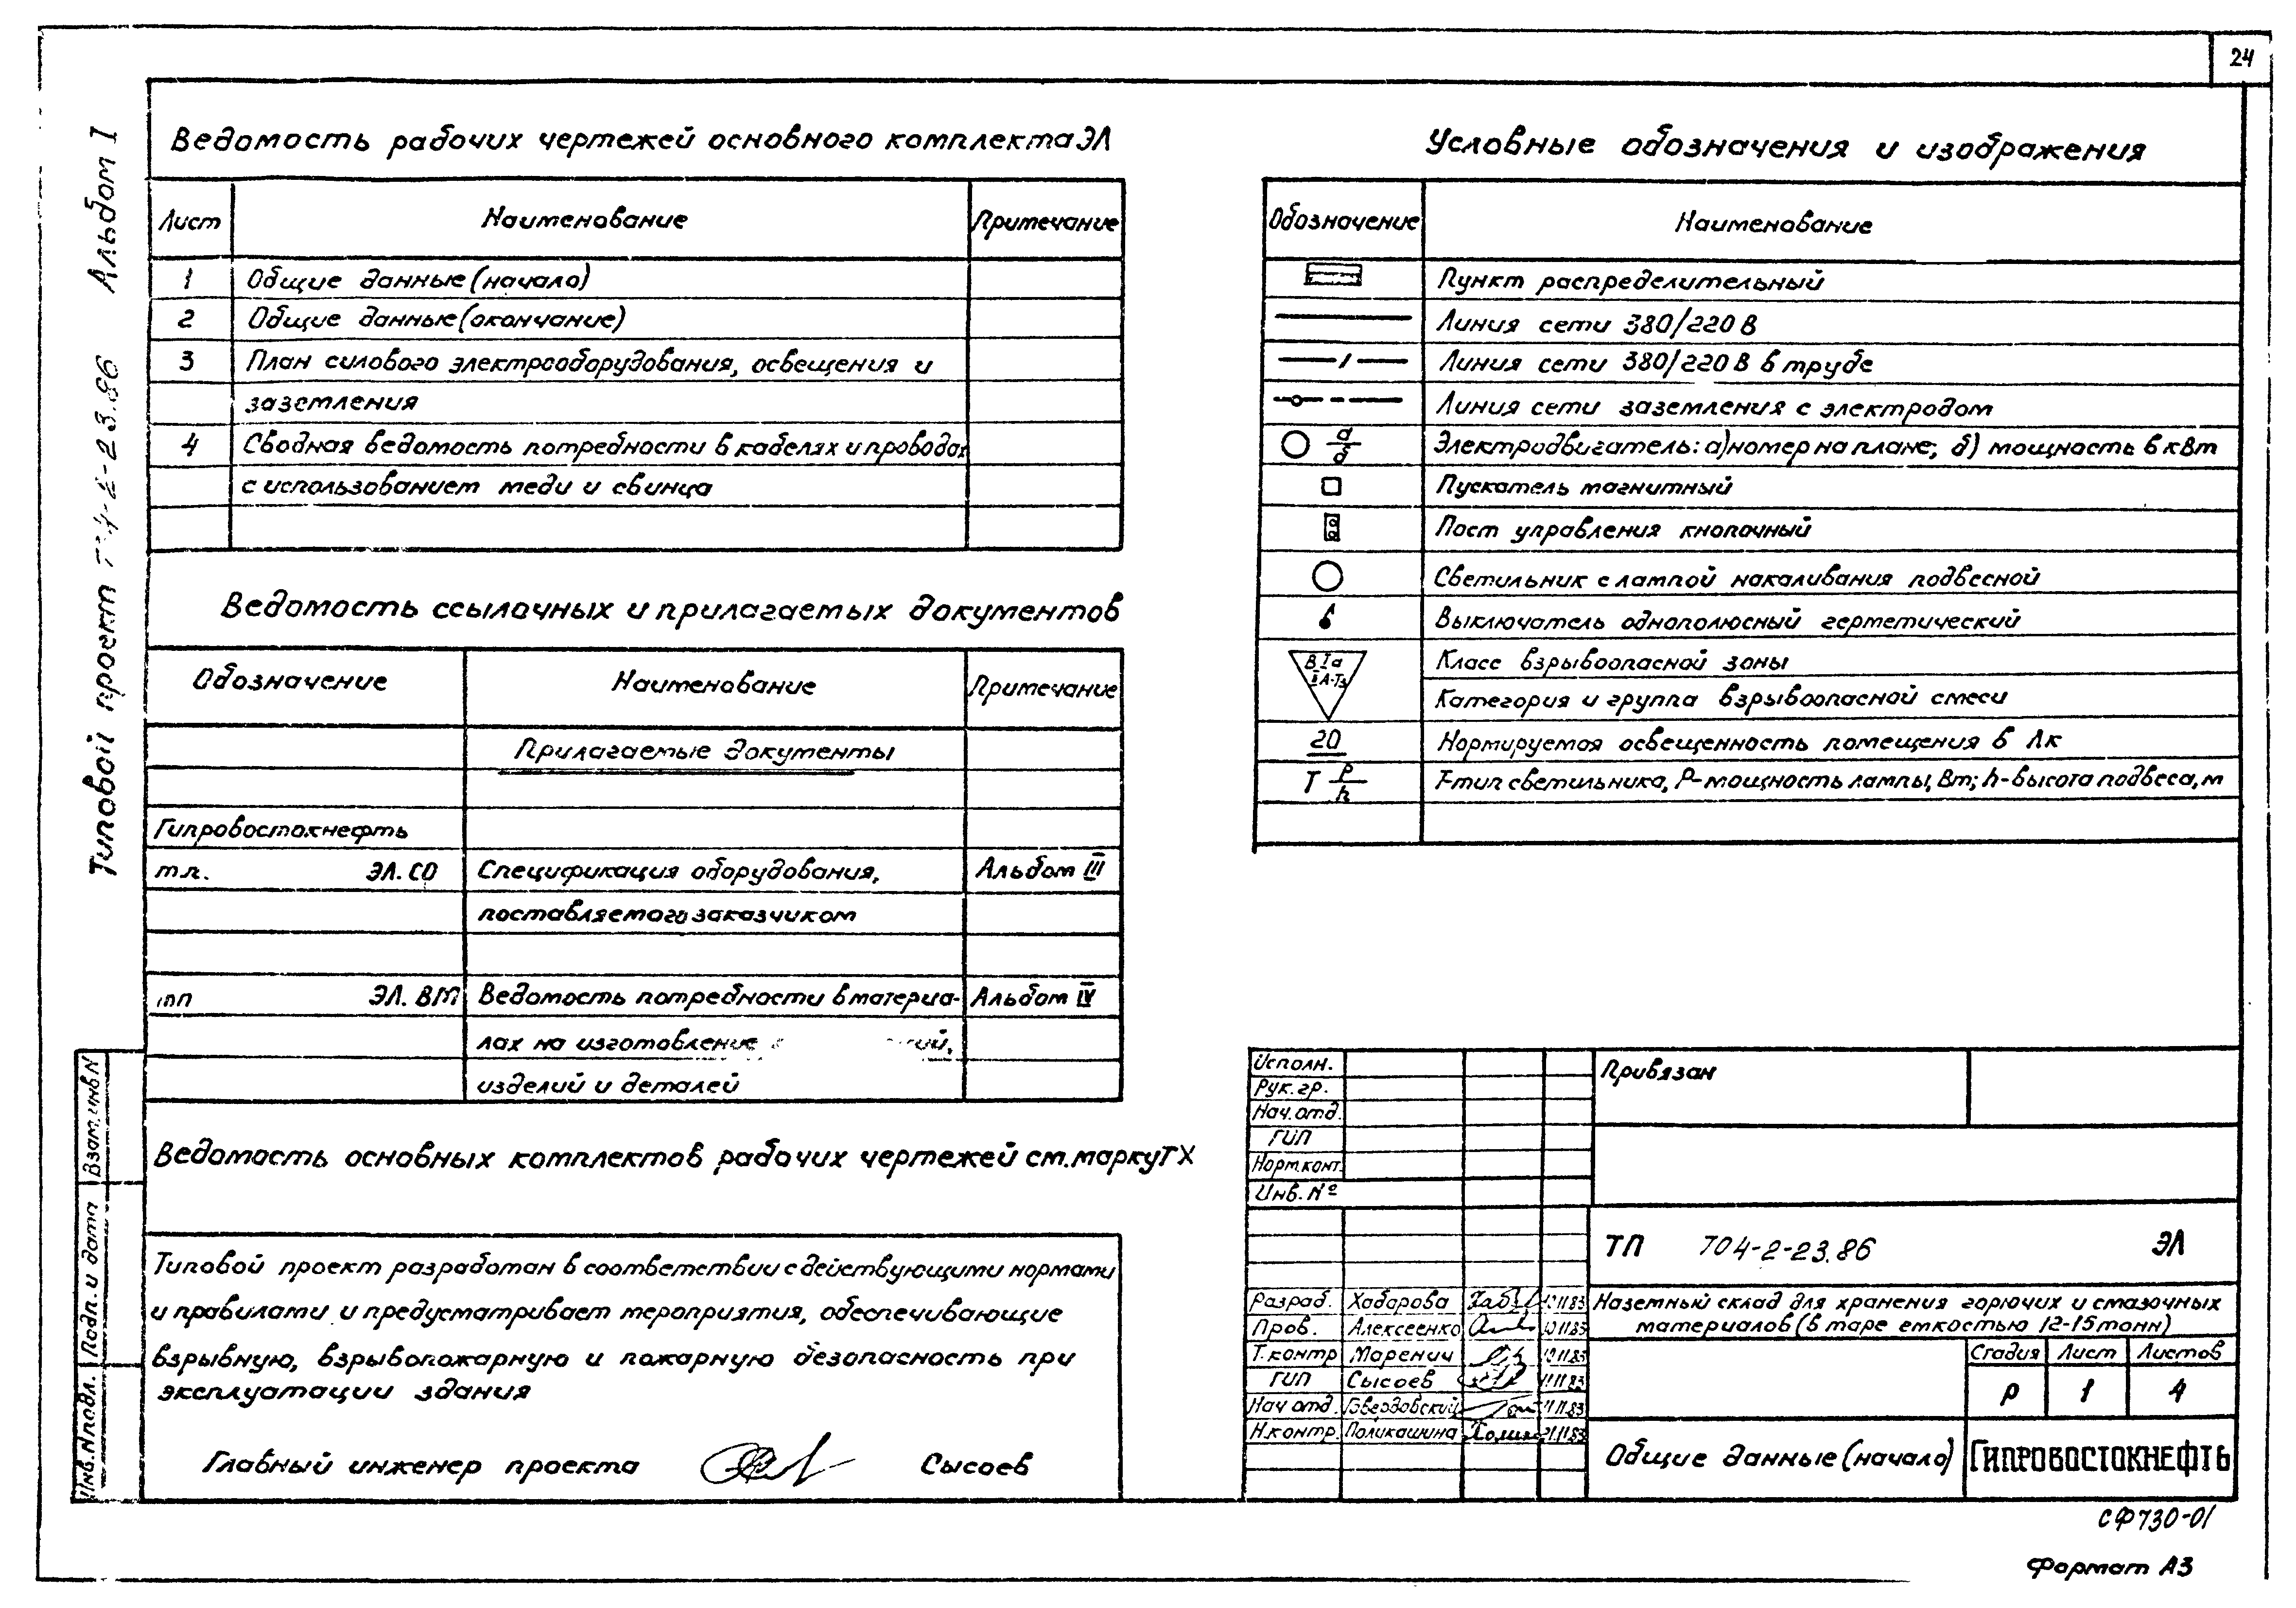 24
Альбом I
Типовой проект
Ведомость рабочих чертежей основного комплекта ЭЛ
Лист Наименование Примечание
1 Общие данные (начало)
2 Общие данные (окончание)
3 План силового электрооборудования, освещения и
заземления
4 Сводная ведомость потребности в кабелях и проводах
с использованием меди и свинца
Ведомость ссылочных и прилагаемых документов
Обозначение Наименование Примечание
Прилагаемые документы
Гипровостокнефть
т.п. ЭЛ.СО Спецификация оборудования, Альбом III
поставляемого заказчиком
тп ЭЛ. ВМ Ведомость потребности в материа- Альбом IV
лах на изготовление
изделий и деталей
Ведомость основных комплектов рабочих чертежей см. марку ТХ
Типовой проект разработан в соответствии с действующими нормами
и правилами и предусматривает мероприятия, обеспечивающие
взрывную, взрывопожарную и пожарную безопасность при
эксплуатации здания
Главный инженер проекта Сысоев
Условные обозначения и изображения
Обозначение Наименование
Пункт распределительный
Линия сети 380/220 В
Линия сети 380/220 В в трубе
Линия сети заземления с электродом
а/б Электродвигатель: а) номер на плане; б) мощность в кВт
Пускатель магнитный
Пост управления кнопочный
Светильник с лампой накаливания подвесной
Выключатель однополюсный герметический
В Iа Класс взрывоопасной зоны
II А-Т3 Категория и группа взрывоопасной смеси
20 Нормируемая освещенность помещения в Лк
Т P/h Т-тип светильника, Р-мощность лампы, Вт; h-высота подвеса, м
Исполн.
Рук. гр.
Нач. отд.
ГИП
Норм.конт.
Инв. №
Привязан
ТП 704-2-23.86 ЭЛ
Разраб. Хабарова
Пров. Алексеенко
Т. контр Маренич
ГИП Сысоев
Нач отд.
Н.контр. Поликашина
Наземный склад для хранения горючих и смазочных
материалов (в таре емкостью 12-15 тонн)
Стадия Лист Листов
Р 1 4
Общие данные (начало) ГИПРОВОСТОКНЕФТЬ
Взам. инв N
Подп. и дата
Инв. N подл.
СФ730-01
Формат А3